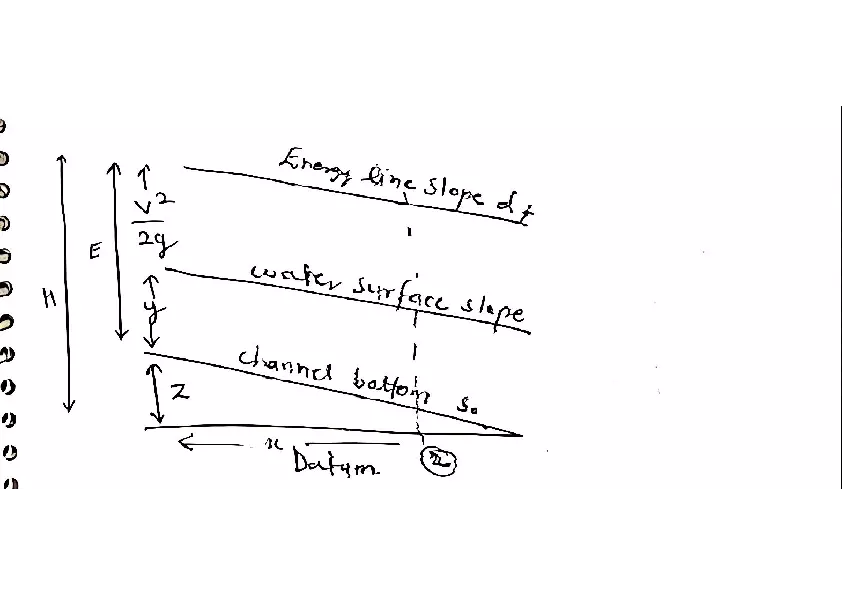 Energy line slope df
V²
2g
E
H
water surface slope
y
channel bottom s₀
Z
x
Datum